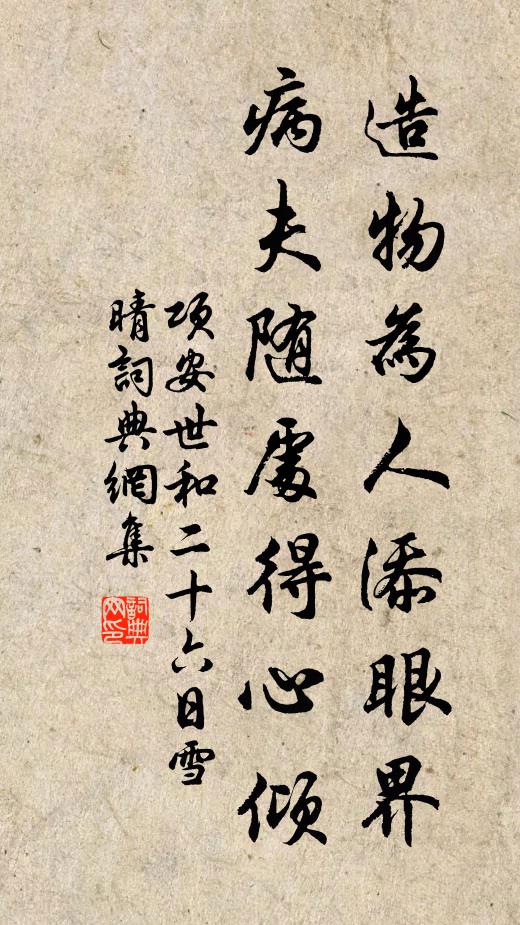 造物為人添眼界
病夫随處得心傾
项安世和二十六日雪
晴詞典網集
詞典网印